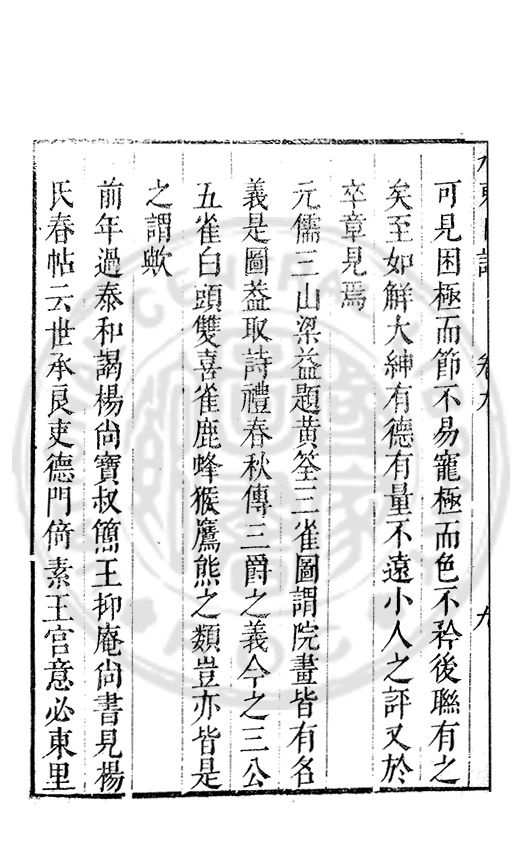 可見困極而節不易寵極而色不矜後聯有之
矣至如觧大紳有德有量不遠小人之評又於
卒章見焉
元儒三山梁益題黄筌三雀圖謂院畫皆有名
義是圖葢取詩禮春秋傳三爵之義今之三公
五雀白頭雙喜雀鹿蜂猴鷹熊之類豈亦皆是
之謂歟
前年過泰和謁楊尚寶叔簡王抑庵尚書見楊
氏春帖云世承良吏德門倚素王宫意必東里